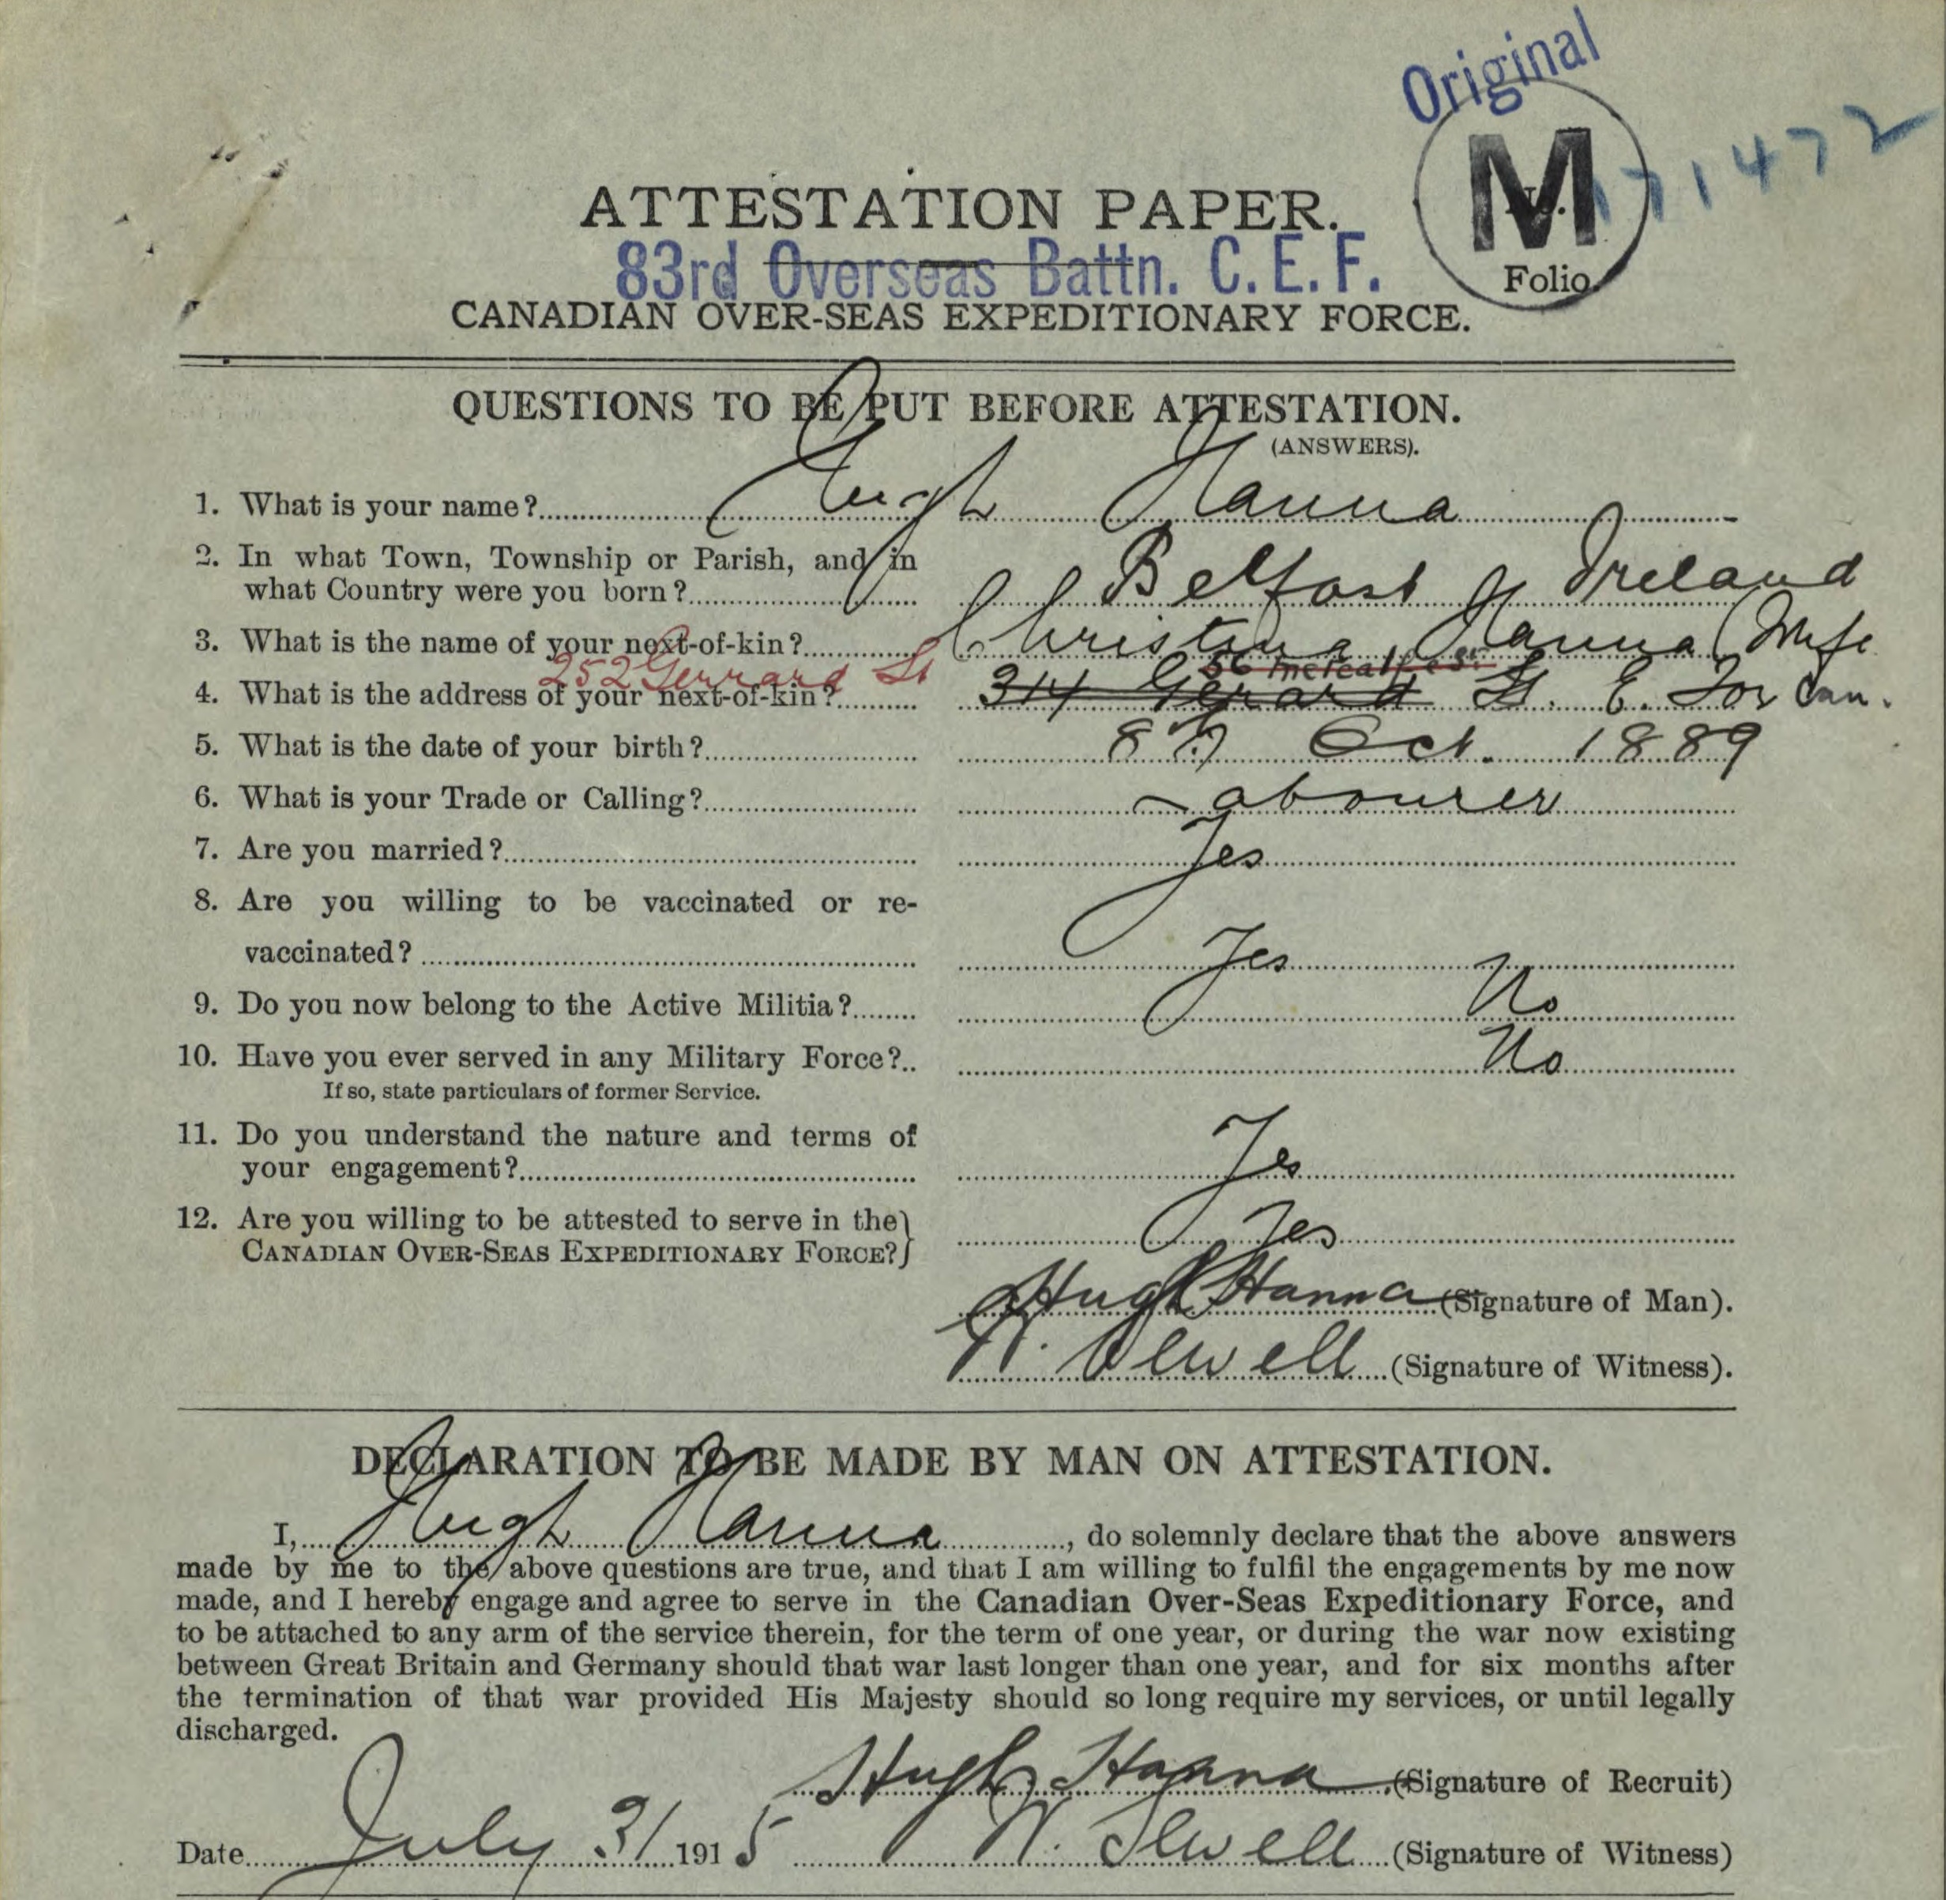 Original
M
No. 171472
Folio.
ATTESTATION PAPER.
83rd Overseas Battn. C.E.F.
CANADIAN OVER-SEAS EXPEDITIONARY FORCE.
QUESTIONS TO BE PUT BEFORE ATTESTATION.
(ANSWERS).
1. What is your name? Hugh Hanna
2. In what Town, Township or Parish, and in
what Country were you born? Belfast Ireland
3. What is the name of your next-of-kin? Christina Hanna (Wife
252 Gerrard St
56 Metcalfe St
4. What is the address of your next-of-kin? 314 Gerard St. E. Tor Can.
5. What is the date of your birth? 8th Oct. 1889
6. What is your Trade or Calling? Labourer
7. Are you married? Yes
8. Are you willing to be vaccinated or re-
vaccinated? Yes
9. Do you now belong to the Active Militia? No
10. Have you ever served in any Military Force? No
If so, state particulars of former Service.
11. Do you understand the nature and terms of
your engagement? Yes
12. Are you willing to be attested to serve in the
CANADIAN OVER-SEAS EXPEDITIONARY FORCE? Yes
Hugh Hanna (Signature of Man).
(Signature of Witness).
DECLARATION TO BE MADE BY MAN ON ATTESTATION.
I, Hugh Hanna, do solemnly declare that the above answers
made by me to the above questions are true, and that I am willing to fulfil the engagements by me now
made, and I hereby engage and agree to serve in the Canadian Over-Seas Expeditionary Force, and
to be attached to any arm of the service therein, for the term of one year, or during the war now existing
between Great Britain and Germany should that war last longer than one year, and for six months after
the termination of that war provided His Majesty should so long require my services, or until legally
discharged.
Hugh Hanna (Signature of Recruit)
Date July 31 1915 (Signature of Witness)